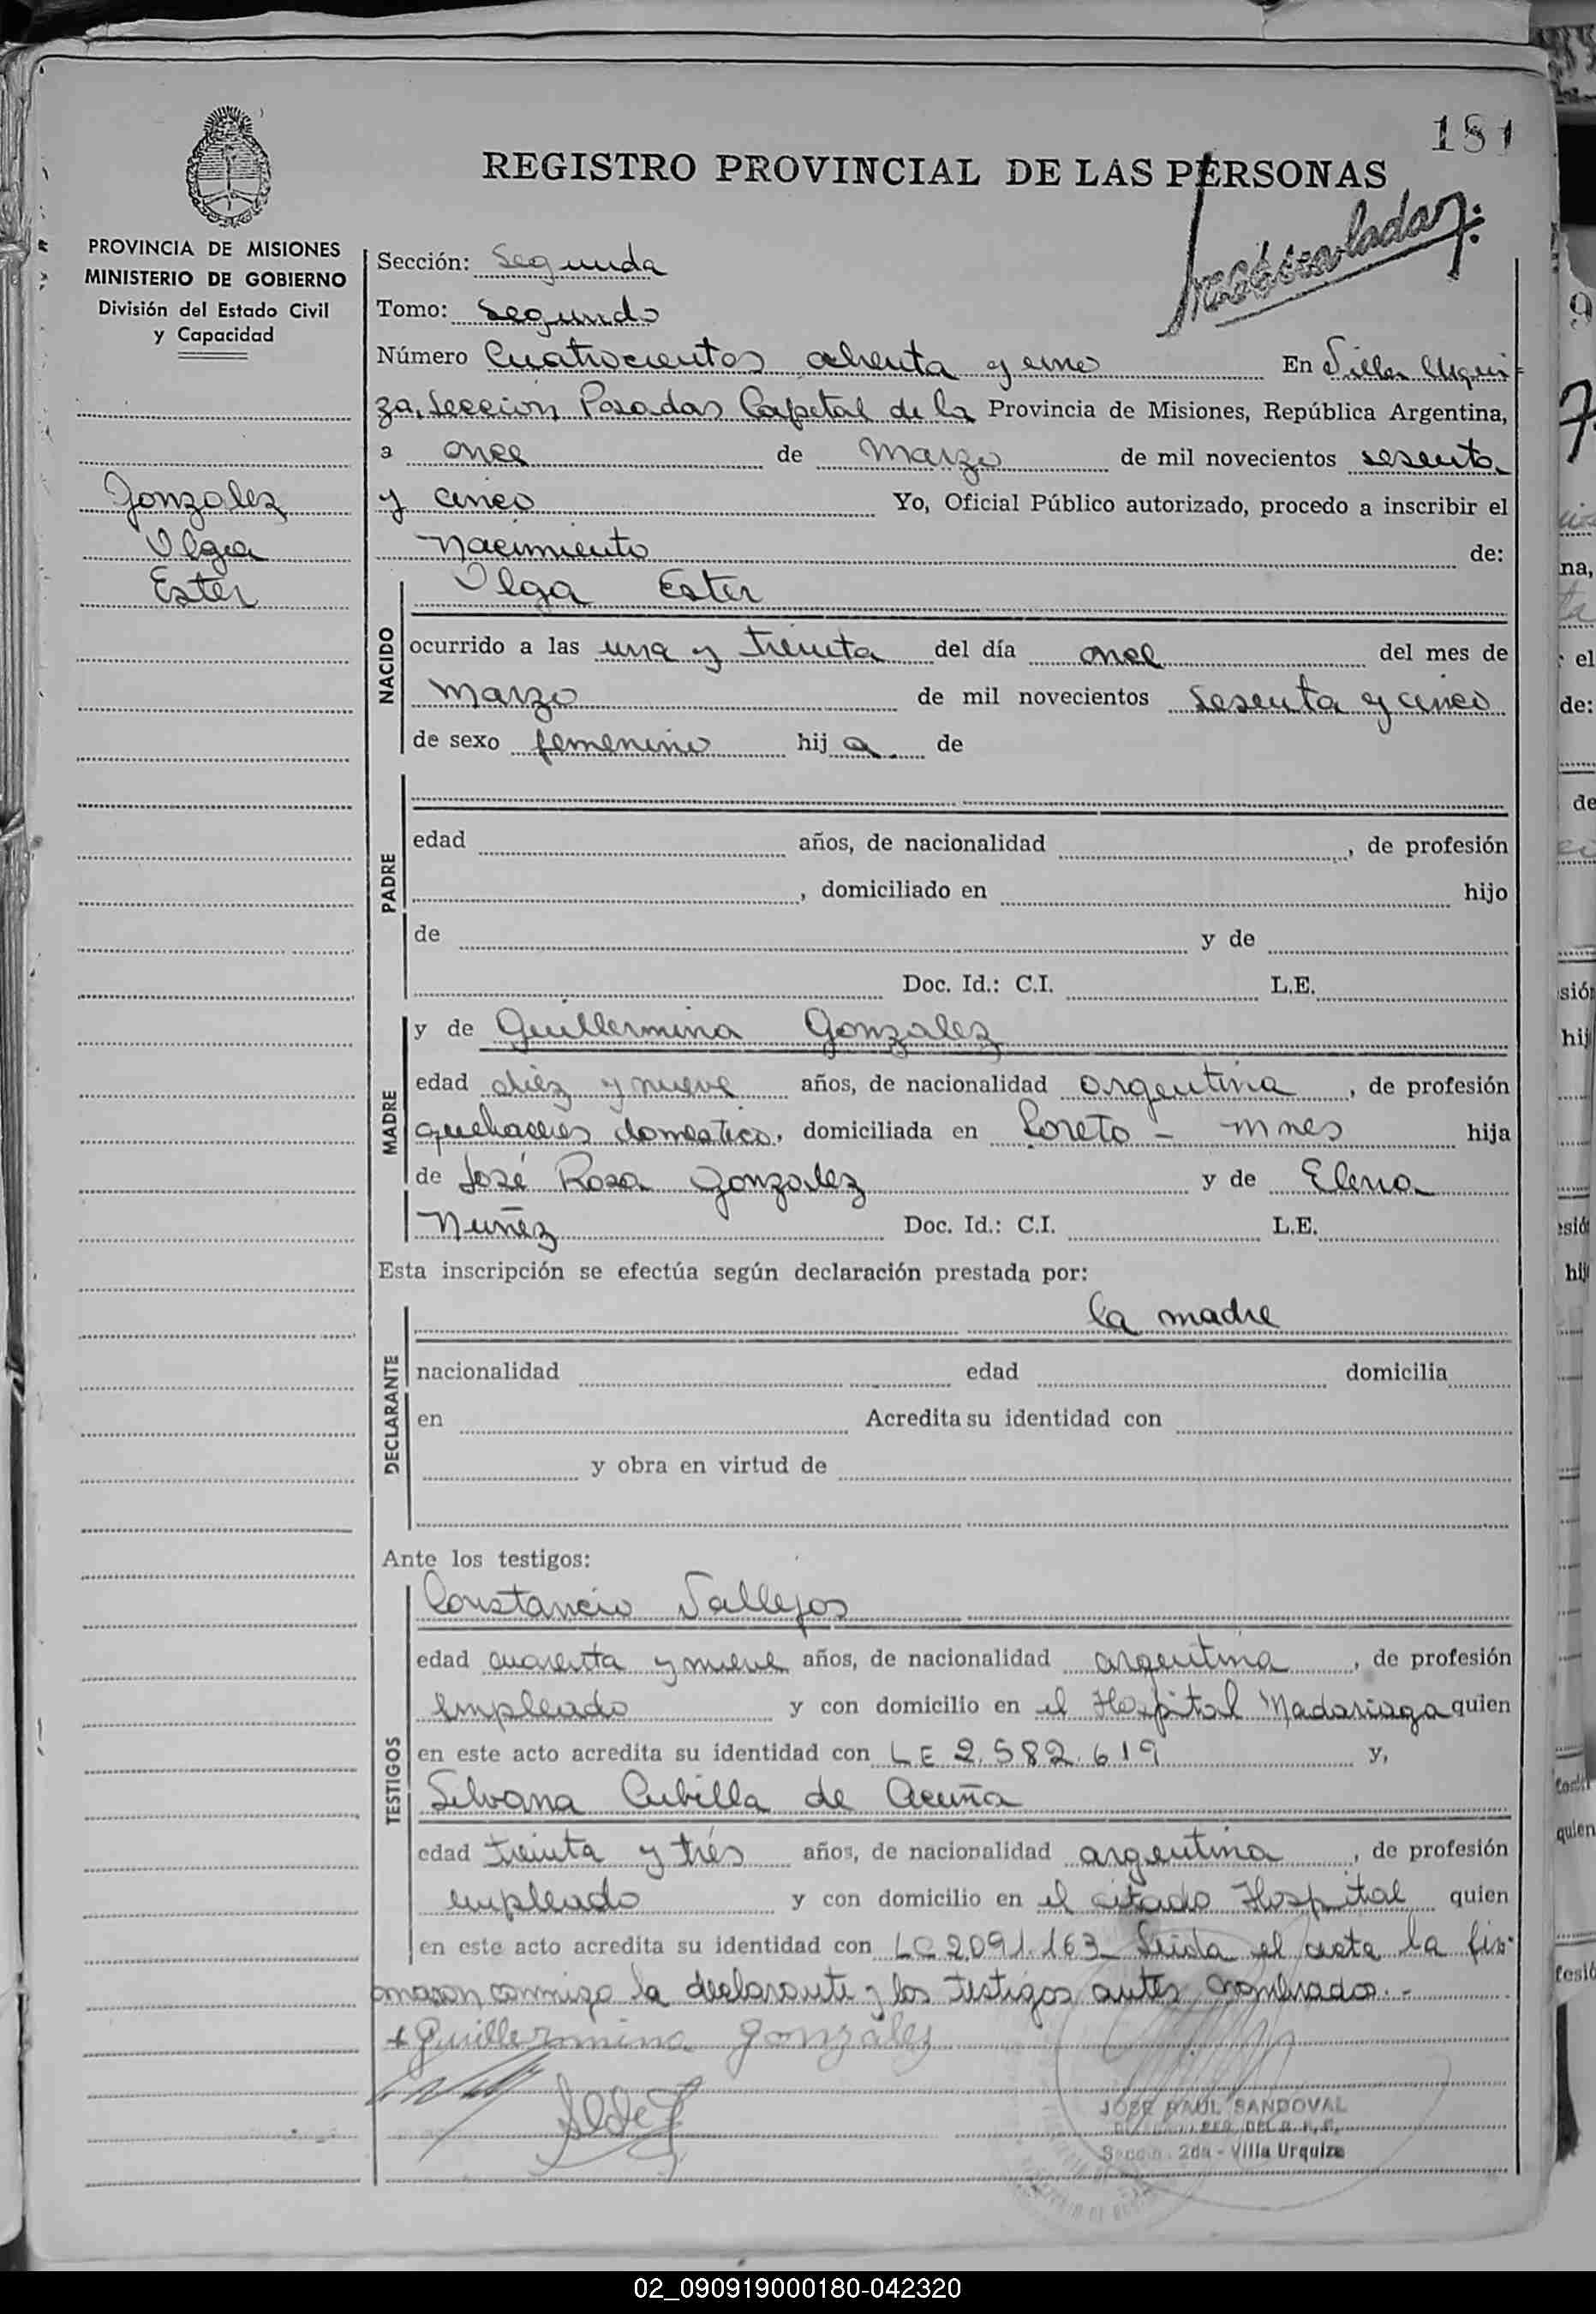 181
REGISTRO PROVINCIAL DE LAS PERSONAS
PROVINCIA DE MISIONES
MINISTERIO DE GOBIERNO
División del Estado Civil
y Capacidad
Gonzalez
Olga
Ester
Sección: Segunda
Tomo: Segundo
Número Cuatrocientos ochenta y uno En Villa Urqui-
za, Sección Posadas Capital de la Provincia de Misiones, República Argentina,
a once de Marzo de mil novecientos sesenta
y cinco Yo, Oficial Público autorizado, procedo a inscribir el
nacimiento de:
NACIDO
Olga Ester
ocurrido a las una y treinta del día once del mes de
Marzo de mil novecientos sesenta y cinco
de sexo femenino hija de
PADRE
edad años, de nacionalidad , de profesión
, domiciliado en hijo
de y de
Doc. Id.: C.I. L.E.
MADRE
y de Guillermina Gonzalez
edad diez y nueve años, de nacionalidad argentina, de profesión
quehaceres domestico, domiciliada en Loreto - Mnes hija
de José Rosa Gonzalez y de Elena
Nuñez Doc. Id.: C.I. L.E.
Esta inscripción se efectúa según declaración prestada por:
DECLARANTE
la madre
nacionalidad edad domicilia
en Acredita su identidad con
y obra en virtud de
Ante los testigos:
TESTIGOS
Constancio Vallejos
edad cuarenta y nueve años, de nacionalidad argentina, de profesión
empleado y con domicilio en el Hospital Madariaga quien
en este acto acredita su identidad con LE 2.582.619 y,
Silvana Cubilla de Acuña
edad treinta y trés años, de nacionalidad argentina, de profesión
empleado y con domicilio en el citado Hospital quien
en este acto acredita su identidad con LC 2.091.163 Leida el acta la fir-
maron conmigo la declarante y los testigos antes nombrados.-
Guillermina Gonzalez
JOSE RAUL SANDOVAL
Secc. 2da - Villa Urquiza
02_090919000180-042320